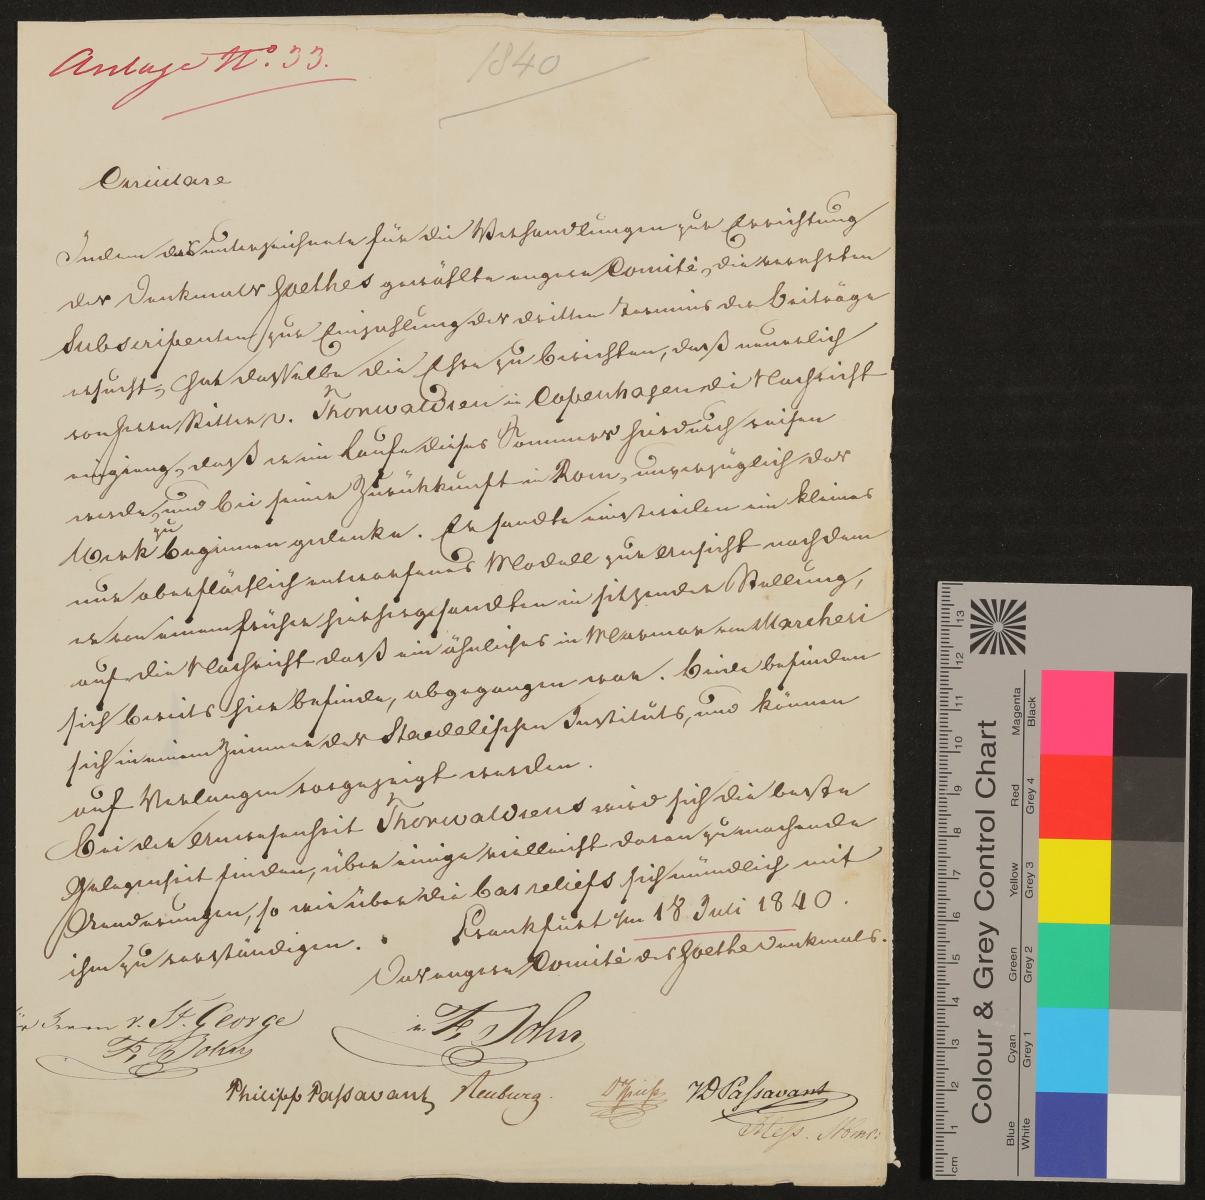 Anlage No. 33.
1840
Circulare
Indem das unterzeichnete für die Verhandlungen zur Errichtung
des Denkmals Goethes gewählte engere Comité, die verehrten
Subscripenten zur Einzahlung des dritten Termins der Beiträge
ersucht, hat dasselbe die Ehre zu berichten, daß neuerlich
von Herrn Ritter v. Thorwaldsen in Copenhagen die Nachricht
einging, daß er im Laufe dieses Sommers hierdurch reisen
werde, und bei seiner Zurückkunft in Rom, unverzüglich das
Werk zu beginnen gedenke. Er sandte einstweilen ein kleines
nur oberflächlich entworfenes Modell zur Ansicht nachdem
er von einem früher hierhergesandten in sitzender Stellung,
auf die Nachricht daß ein ähnliches in Marmor von Marchesi
sich bereits hier befinde, abgegangen war. Beide befinden
sich in einem Zimmer des Staedelischen Instituts, und können
auf Verlangen vorgezeigt werden.
Bei der Anwesenheit Thorwaldsens wird sich die beste
Gelegenheit finden, über einige vielleicht daran zu machende
Aenderungen, so wie über die bas reliefs sich mündlich mit
ihm zu verständigen.
Frankfurt a/m 18 Juli 1840.
Das engere Comité des Goethe Denkmals.
für Herrn v. St. George
F. John
F. John
Philipp Passavant Neuburg. D Spiess JD Passavant
Colour & Grey Control Chart
Blue Cyan Green Yellow Red Magenta
White Grey 1 Grey 2 Grey 3 Grey 4 Black
cm 1 2 3 4 5 6 7 8 9 10 11 12 13